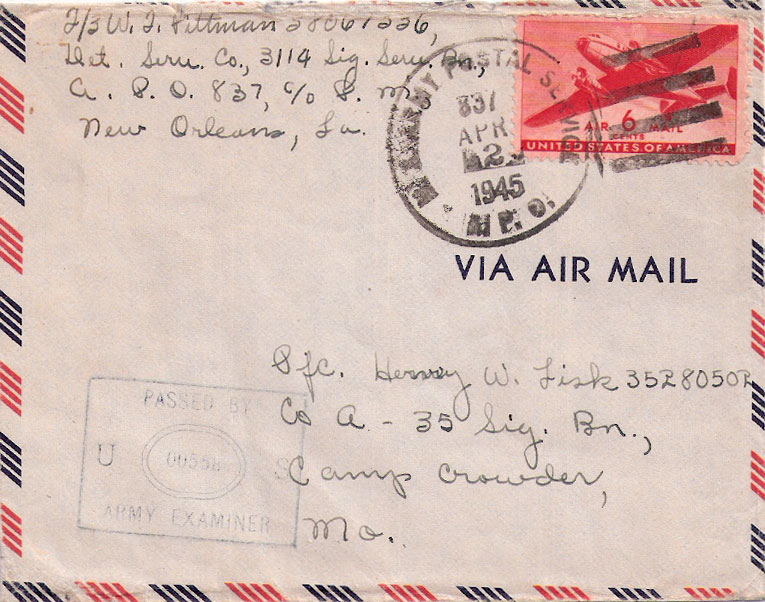 T/3 W. J. Pittman 38067336,
Det. Serv. Co., 3114 Sig. Serv. Bn.,
A. P. O. 837, c/o P. M.
New Orleans, La.
ARMY POSTAL SERVICE
837
APR
2
1945
A. P. O.
AIR 6 MAIL
CENTS
UNITED STATES OF AMERICA
VIA AIR MAIL
Pfc. Hervey W. Fisk 35280502
Co A - 35 Sig. Bn.,
Camp Crowder,
Mo.
PASSED BY
U S
ARMY EXAMINER